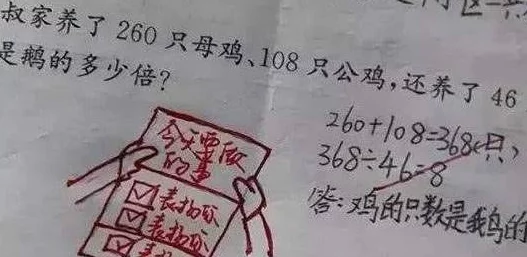 叔家养了 260 只母鸡、108 只公鸡,还养了 46
是鹅的多少倍?
260+108=368(只)
368÷46=8
答:鸡的只数是我鸟的
今天要做
的事
表扬你
表扬你
表扬